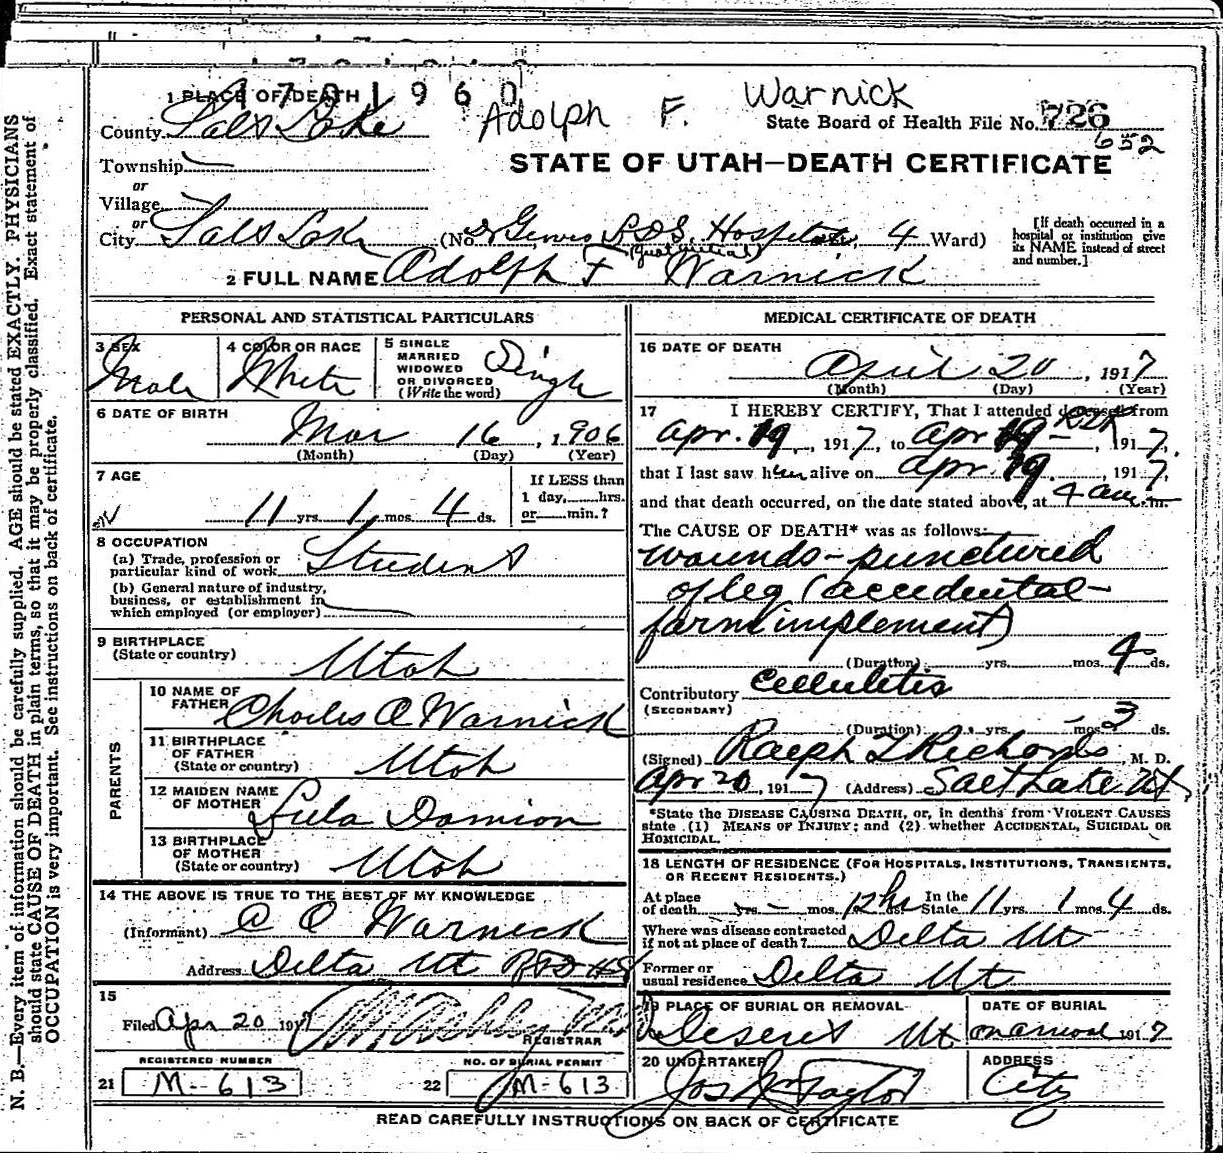 N. B.—Every item of information should be carefully supplied. AGE should be stated EXACTLY. PHYSICIANS
should state CAUSE OF DEATH in plain terms, so that it may be properly classified. Exact statement of
OCCUPATION is very important. See instructions on back of certificate.
1 PLACE OF DEATH
County Salt Lake
Adolph F. Warnick
State Board of Health File No. 726
652
Township
STATE OF UTAH—DEATH CERTIFICATE
or
Village
or
City Salt Lake (No. L.D.S. Hospital, 4 Ward)
[If death occurred in a
hospital or institution give
its NAME instead of street
and number.]
2 FULL NAME Adolph F Warnick
PERSONAL AND STATISTICAL PARTICULARS
3 SEX
Male
4 COLOR OR RACE
White
5 SINGLE
MARRIED
WIDOWED
OR DIVORCED
(Write the word)
Single
6 DATE OF BIRTH
Mar 16, 1906
(Month) (Day) (Year)
7 AGE
11 yrs. 1 mos. 4 ds.
If LESS than
1 day, hrs.
or min.?
8 OCCUPATION
(a) Trade, profession or
particular kind of work Student
(b) General nature of industry,
business, or establishment in
which employed (or employer)
9 BIRTHPLACE
(State or country)
Utah
PARENTS
10 NAME OF
FATHER Charles O Warnick
11 BIRTHPLACE
OF FATHER
(State or country) Utah
12 MAIDEN NAME
OF MOTHER Lula Damion
13 BIRTHPLACE
OF MOTHER
(State or country) Utah
14 THE ABOVE IS TRUE TO THE BEST OF MY KNOWLEDGE
(Informant) C O Warnick
Address Delta Ut
15
Filed Apr 20 1917
REGISTRAR
REGISTERED NUMBER
21 M-613
NO. OF BURIAL PERMIT
22 M-613
MEDICAL CERTIFICATE OF DEATH
16 DATE OF DEATH
April 20, 1917
(Month) (Day) (Year)
17 I HEREBY CERTIFY, That I attended deceased from
Apr. 19, 1917, to Apr 19, 1917,
that I last saw him alive on Apr. 19, 1917,
and that death occurred, on the date stated above, at 4 am. m.
The CAUSE OF DEATH* was as follows:
wounds - punctured
of leg (accidental -
farm implement)
(Duration) yrs. mos. 4 ds.
Contributory Cellulitis
(SECONDARY)
(Duration) yrs. mos. 3 ds.
(Signed) Ralph T Richards M. D.
Apr 20, 1917 (Address) Salt Lake Ut.
*State the DISEASE CAUSING DEATH, or, in deaths from VIOLENT CAUSES
state (1) MEANS OF INJURY; and (2) whether ACCIDENTAL, SUICIDAL OR
HOMICIDAL.
18 LENGTH OF RESIDENCE (FOR HOSPITALS, INSTITUTIONS, TRANSIENTS,
OR RECENT RESIDENTS.)
At place
of death yrs. - mos. 12 hr ds. In the
State 11 yrs. 1 mos. 4 ds.
Where was disease contracted
if not at place of death? Delta Ut
Former or
usual residence Delta Ut
19 PLACE OF BURIAL OR REMOVAL
Deseret Ut
DATE OF BURIAL
on arrival 1917
20 UNDERTAKER
Jos Wm Taylor
ADDRESS
City
READ CAREFULLY INSTRUCTIONS ON BACK OF CERTIFICATE